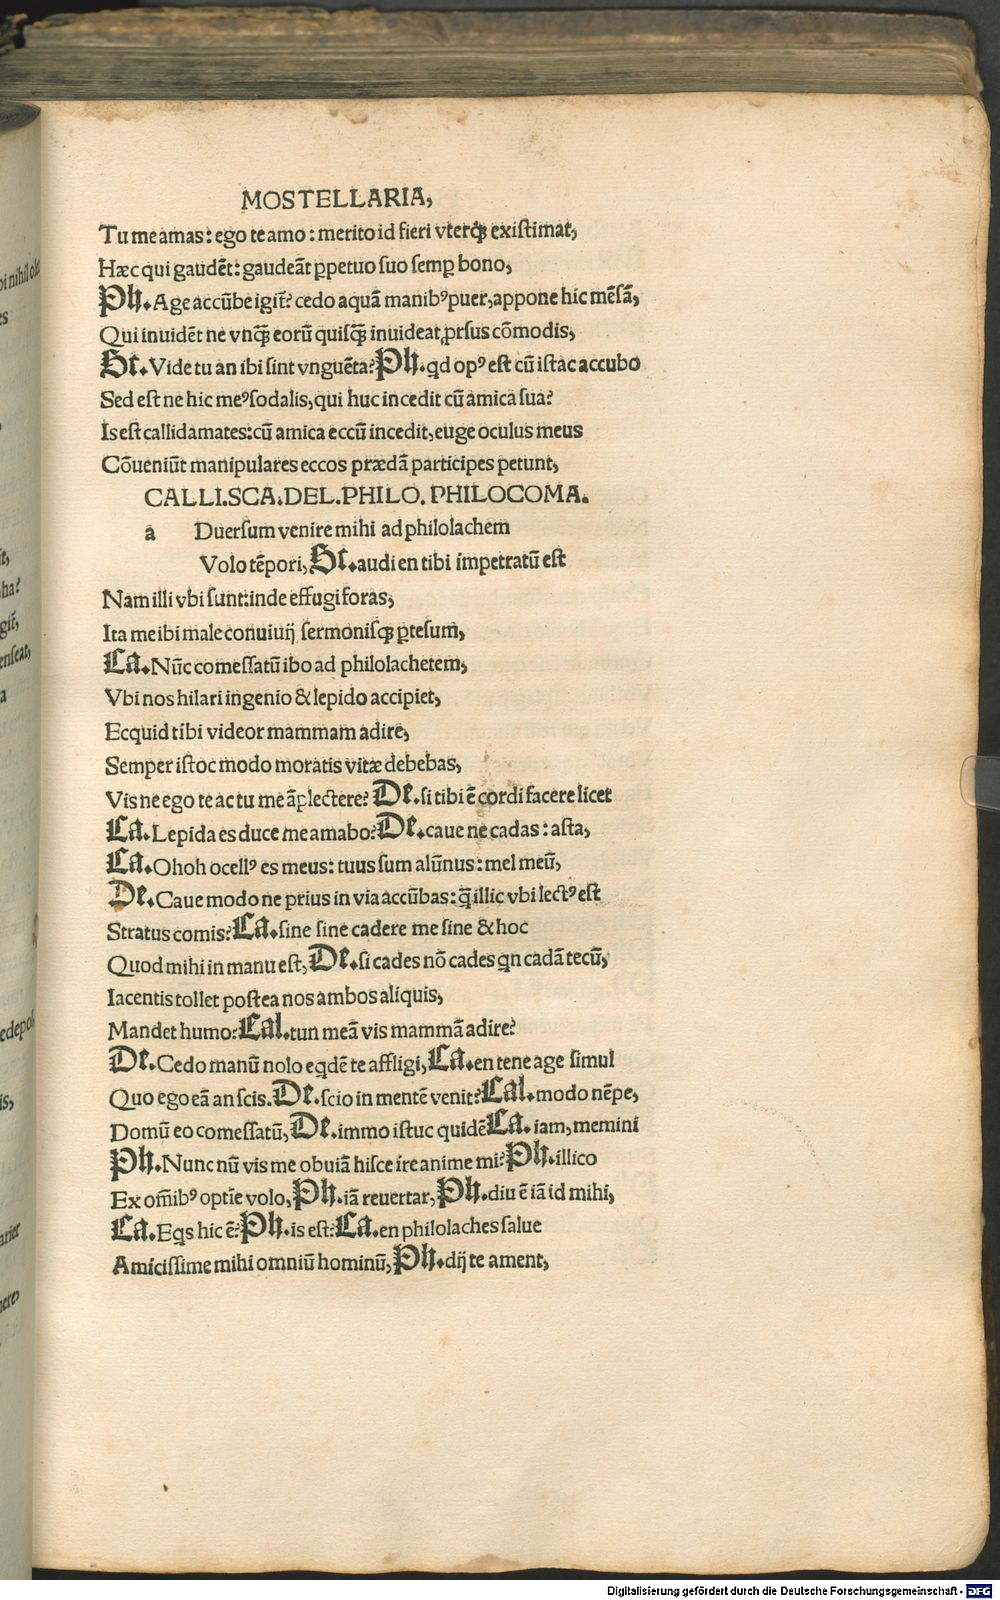 MOSTELLARIA,
Tu me amas: ego te amo: merito id fieri vterq̃ existimat,
Hæc qui gaudẽt: gaudeãt ꝑpetuo suo semꝑ bono,
Ph. Age accũbe igit̃? cedo aquã manibꝰ puer, appone hic mẽsã,
Qui inuidẽt ne vnq̃ eorũ quisq̃ inuideat ꝓrsus cõmodis,
Sr. Vide tu an ibi sint vnguẽta? Ph. qd opꝰ est cũ istac accubo
Sed est ne hic meꝰ sodalis, qui huc incedit cũ amica sua?
Is est callidamates: cũ amica eccũ incedit, euge oculus meus
Cõueniũt manipulares eccos prædã participes petunt,
CALLI.SCA.DEL.PHILO. PHILOCOMA.
a Duersum venire mihi ad philolachem
Volo tẽpori, Sr. audi en tibi impetratũ est
Nam illi vbi sunt: inde effugi foras,
Ita me ibi male conuiuij sermonisq̃ ꝑtesum,
Ca. Nũc comessatũ ibo ad philolachetem,
Vbi nos hilari ingenio & lepido accipiet,
Ecquid tibi videor mammam adire,
Semper istoc modo moratis vitæ debebas,
Vis ne ego te ac tu me ãplectere? De. si tibi ẽ cordi facere licet
Ca. Lepida es duce me amabo? De. caue ne cadas: asta,
Ca. Ohoh ocellꝰ es meus: tuus sum alũnus: mel meũ,
De. Caue modo ne prius in via accũbas: q̃ illic vbi lectꝰ est
Stratus comis? Ca. sine sine cadere me sine & hoc
Quod mihi in manu est, De. si cades nõ cades qn cadã tecũ,
Iacentis tollet postea nos ambos aliquis,
Mandet humo? Cal. tun meã vis mammã adire?
De. Cedo manũ nolo eqdẽ te affligi, Ca. en tene age simul
Quo ego eã an scis. De. scio in mentẽ venit? Cal. modo nẽpe,
Domũ eo comessatũ, De. immo istuc quidẽ Ca. iam, memini
Ph. Nunc nũ vis me obuiã hisce ire anime mi? Ph. illico
Ex om̃ibꝰ optĩe volo, Ph. iã reuertar, Ph. diu ẽ iã id mihi,
Ca. Eqs hic ẽ? Ph. is est? Ca. en philolaches salue
Amicissime mihi omniũ hominũ, Ph. dij te ament,
pi nihil olet
es
edepol
Digitalisierung gefördert durch die Deutsche Forschungsgemeinschaft - DFG